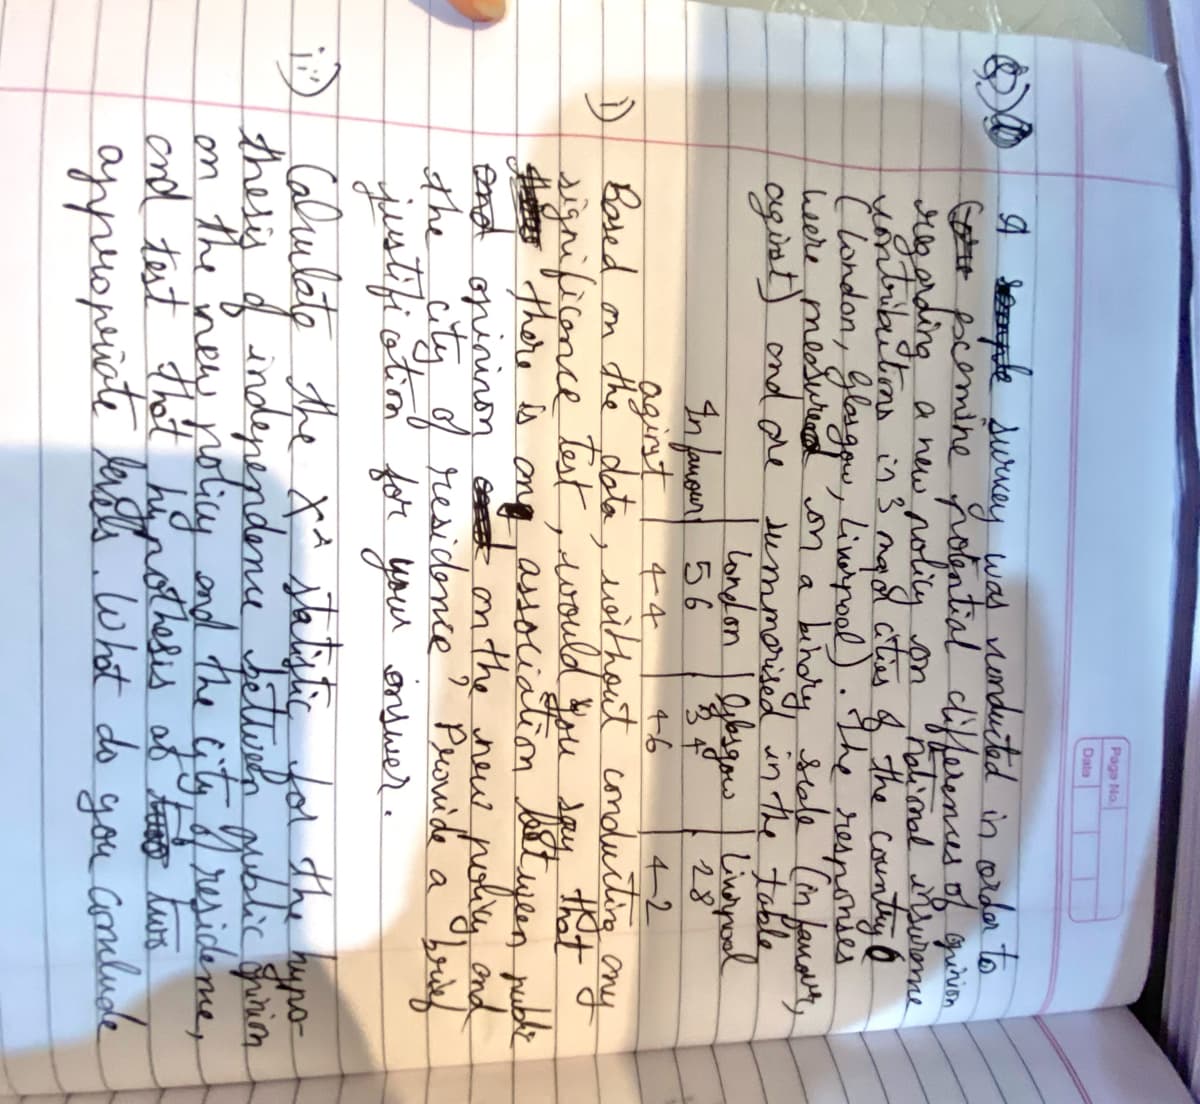 Page No.
Date
Q.) A survey was conducted in order to
examine potential differences of opinion
regarding a new policy on national insurance
contributions in 3 major cities of the country
(London, Glasgow, Liverpool). The responses
were measured on a binary scale (in favour,
aginst) and are summarised in the table
London | Glasgow | Liverpool
In favour | 56 | 34 | 28
aginst | 44 | 46 | 42
i) Based on the data, without conducting any
significance test, would you say that
there is any association between public
opinion on the new policy and
the city of residence? Provide a brief
justification for your answer.
ii) Calculate the x² statistic for the hypo-
thesis of independence between public opinion
on the new policy and the city of residence,
and test that hypothesis at two
appropriate levels. What do you conclude